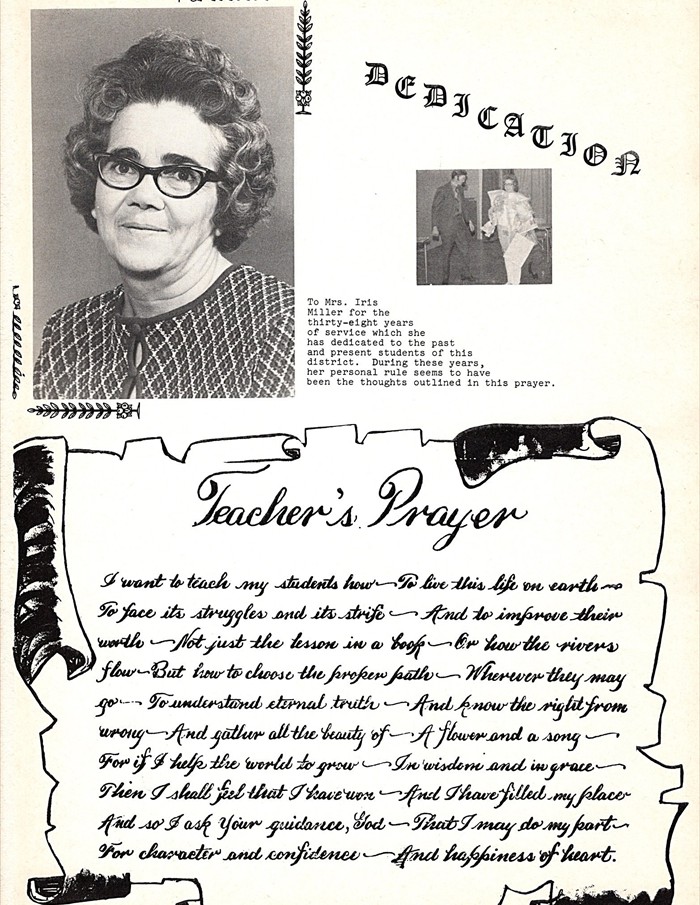 DEDICATION
To Mrs. Iris
Miller for the
thirty-eight years
of service which she
has dedicated to the past
and present students of this
district. During these years,
her personal rule seems to have
been the thoughts outlined in this prayer.
Teacher's Prayer
I want to teach my students how — To live this life on earth —
To face its struggles and its strife — And to improve their
worth — Not just the lesson in a book — Or how the rivers
flow — But how to choose the proper path — Wherever they may
go — To understand eternal truth — And know the right from
wrong — And gather all the beauty of — A flower and a song —
For if I help the world to grow — In wisdom and in grace —
Then I shall feel that I have won — And I have filled my place
And so I ask Your guidance, God — That I may do my part —
For character and confidence — And happiness of heart.